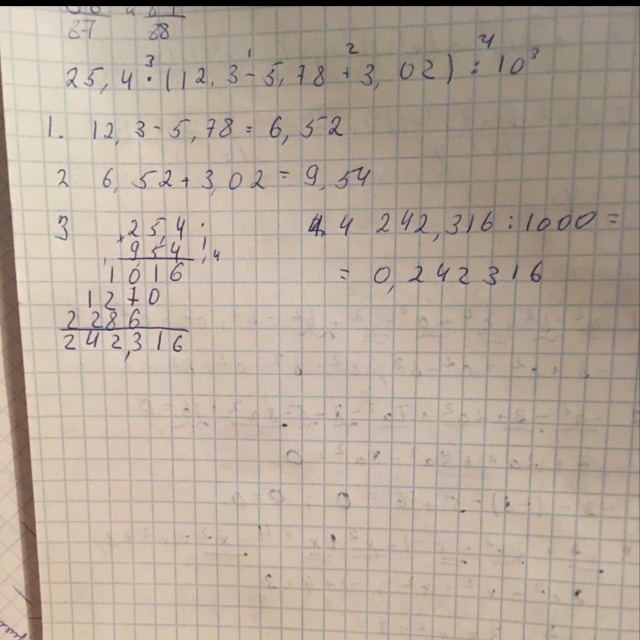 87 88
25,4 · (12,3 - 5,78 + 3,02) : 10³
1. 12,3 - 5,78 = 6,52
2. 6,52 + 3,02 = 9,54
3 × 254
954
1016
1270
2286
242,316
4 242,316 : 1000 =
= 0,242316